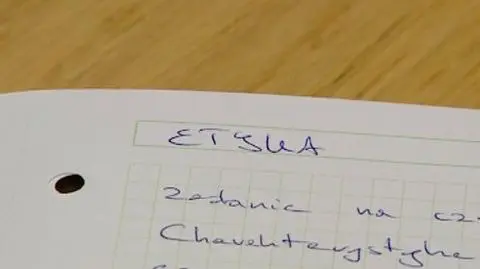 ETYKA
zadanie na cz
Charakterystyka